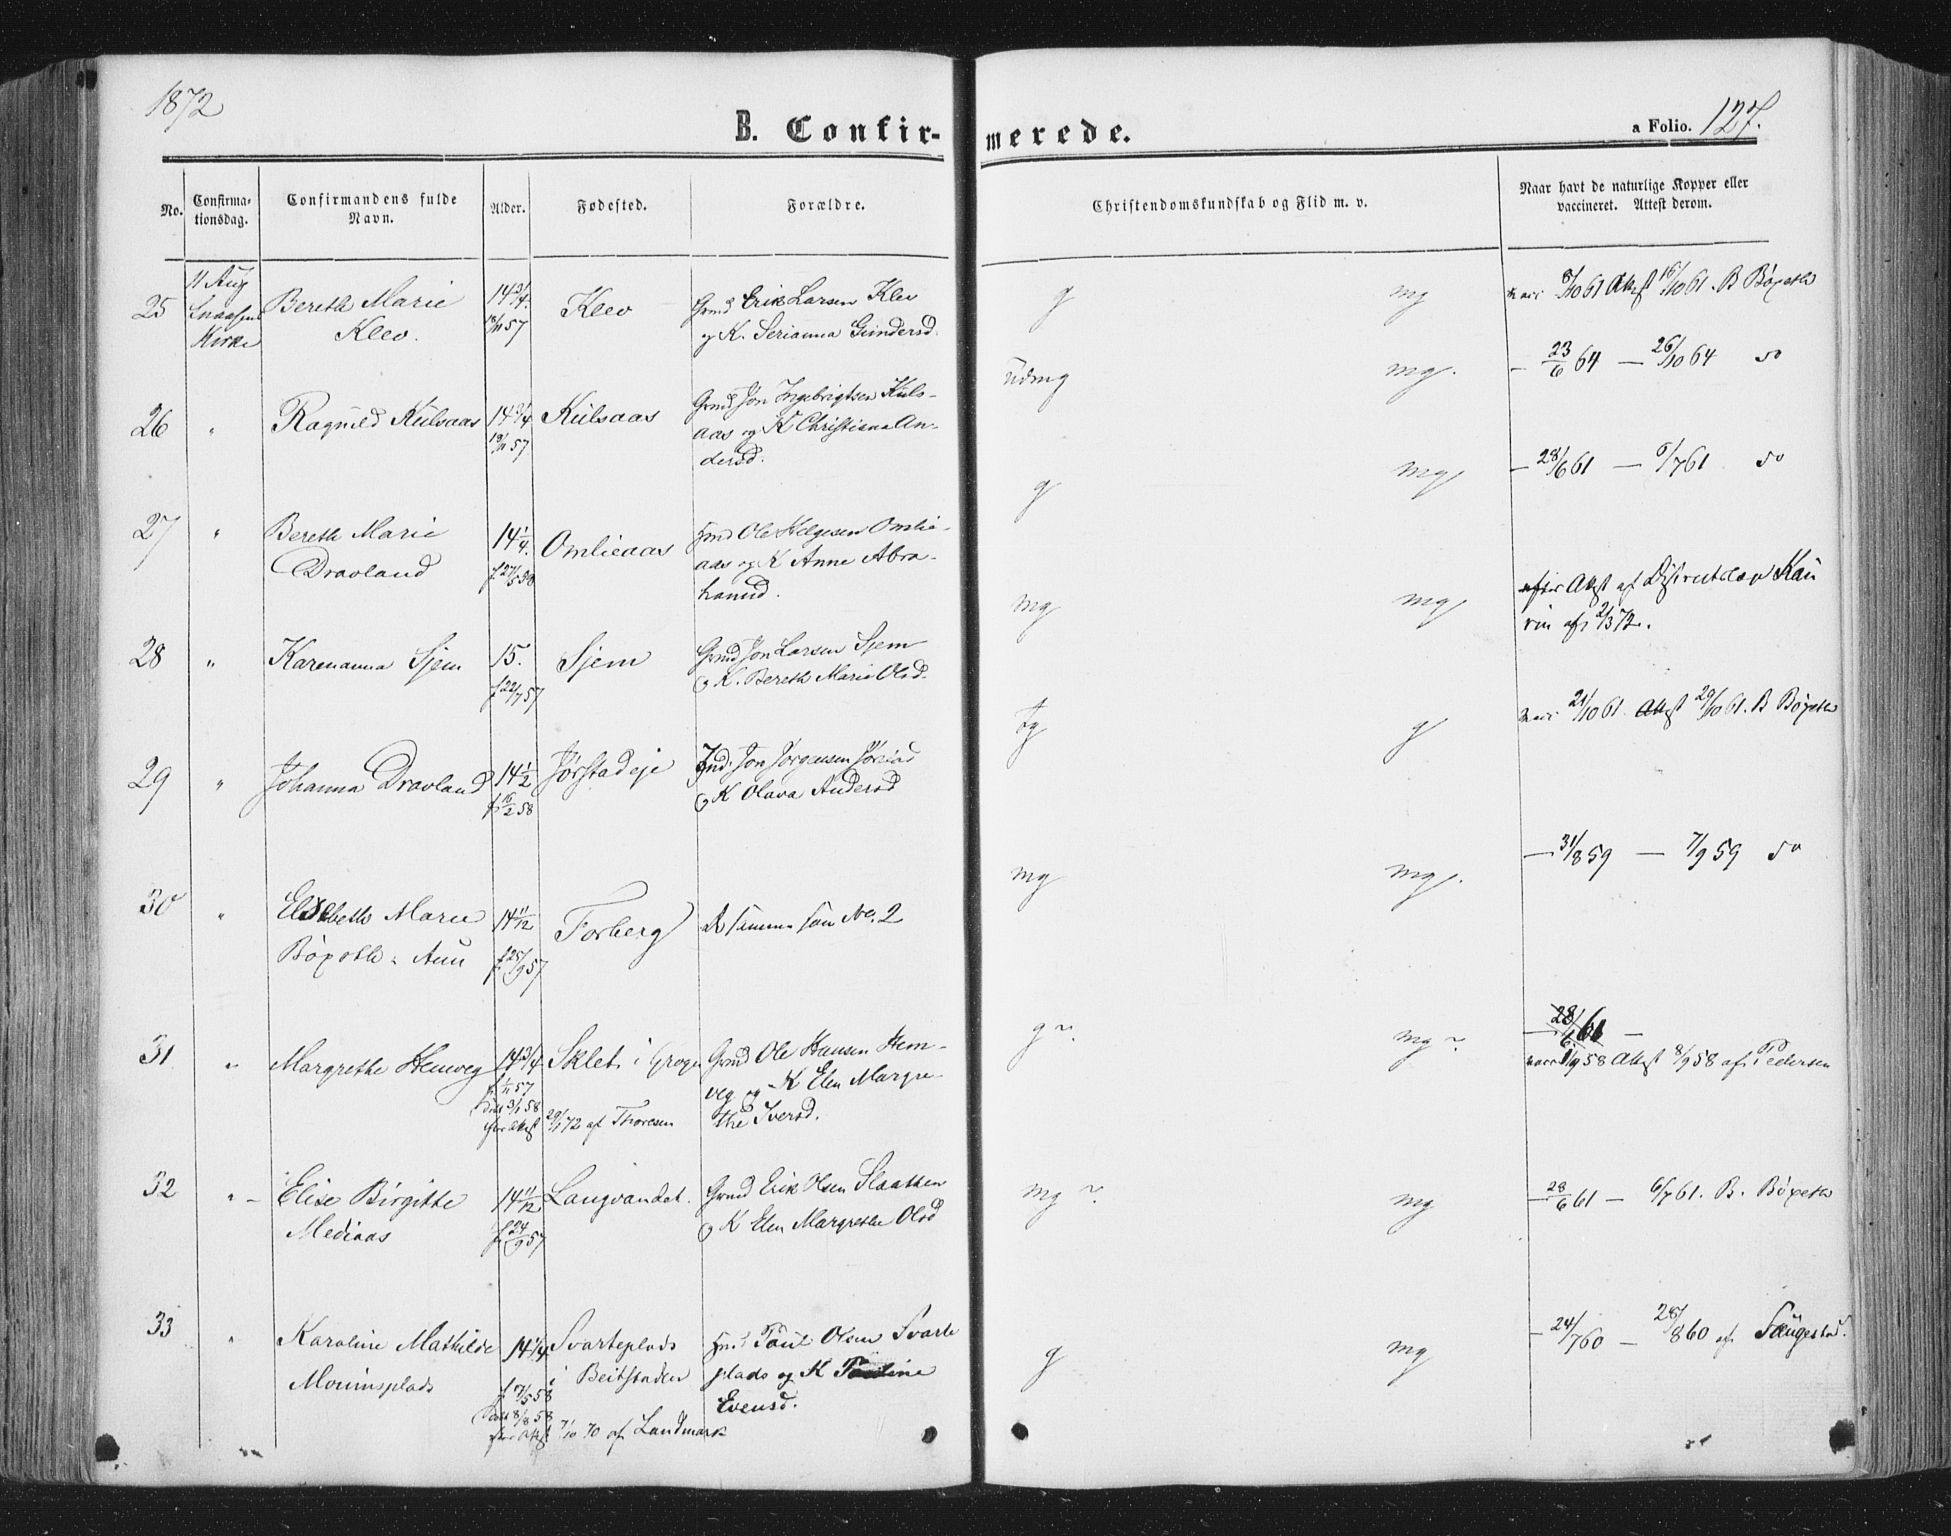 1872
B. Confir-
merede.
a Folio. 127.
No.
Confirma-
tionsdag.
Confirmandens fulde
Navn.
Alder.
Fødested.
Forældre.
Christendomskundskab og Flid m. v.
Naar havt de naturlige Kopper eller
vaccineret. Attest derom.
25 11 Aug Kirke
Bereth Marie
Klev.
14 3/4. 18/11 57
Klev
Grmd Erik Larsen Klev
og K. Serianna Gundersd.
g mg
vacc 8/10 61 Attest 16/10 61. B Bøpeth
26 "
Ragnild Kulsaas
14 3/4 19/11 57
Kulsaas
Grmd Jon Ingebrigtsen Kuls-
aas og K Christiana An-
dersd.
udmg mg.
- 23/6 64 - 26/10 64 do
27 "
Bereth Marie
Dravland
14 1/4. f 27/5 58
Omlieaas
Ole Helgesen Omlie-
aas og K Anne Abra-
hamsd.
g mg
- 28/6 61 - 6/7 61 do
28 "
Karenanna Sjem
15. f 22/7 57
Sjem
Grmd Jon Larsen Sjem
og K. Bereth Marie Olsd.
mg mg
Attest af
af 2/3 72.
29 "
Johanna Dravland
14 1/2 f 16/2 58
Jørstadeje
Ind. Jon Jørgensen Jørstad
og K Olava Andersd
tg g
vacc 21/10 61. Attest 29/10 61. B Bøpeth
30 "
Elisebeth Marie
14 11/12 f 25/9 57
Forberg
De samme som No. 2
mg mg.
- 31/8 59 - 7/9 59 do
31 "
Margrethe Hemveg
14 3/4 f 1/11 57
døbt 3/1 58
iflør Attest 29/1 72 af Thoresen
Sklet i Grogn
Grmd Ole Hansen Hem-
veg og K Elen Margre-
the Iversd.
g? mg?
- 28/6 61 -
vacc 1/9 58 Attest 8/9 58 af P Pedersen
32 " -
Elise Birgitte
Mediaas
14 11/12 f 24/9 57
Langvandet.
Grmd Erik Olsen Slaathen
og K Elen Margrethe Olsd
mg? mg
- 28/6 61 - 6/7 61. B. Bøpeth
33 "
Karoline Mathilde
Moumsplads
14 1/4 f 7/5 58
Svarteplads
i Beitstaden
døbt 8/8 58
Attest 7/10 70 af Landmark
Paul Olsen Svarte
plads og K Pauline
Evensd.
g mg
- 24/7 60 - 28/8 60 af Saugestad.